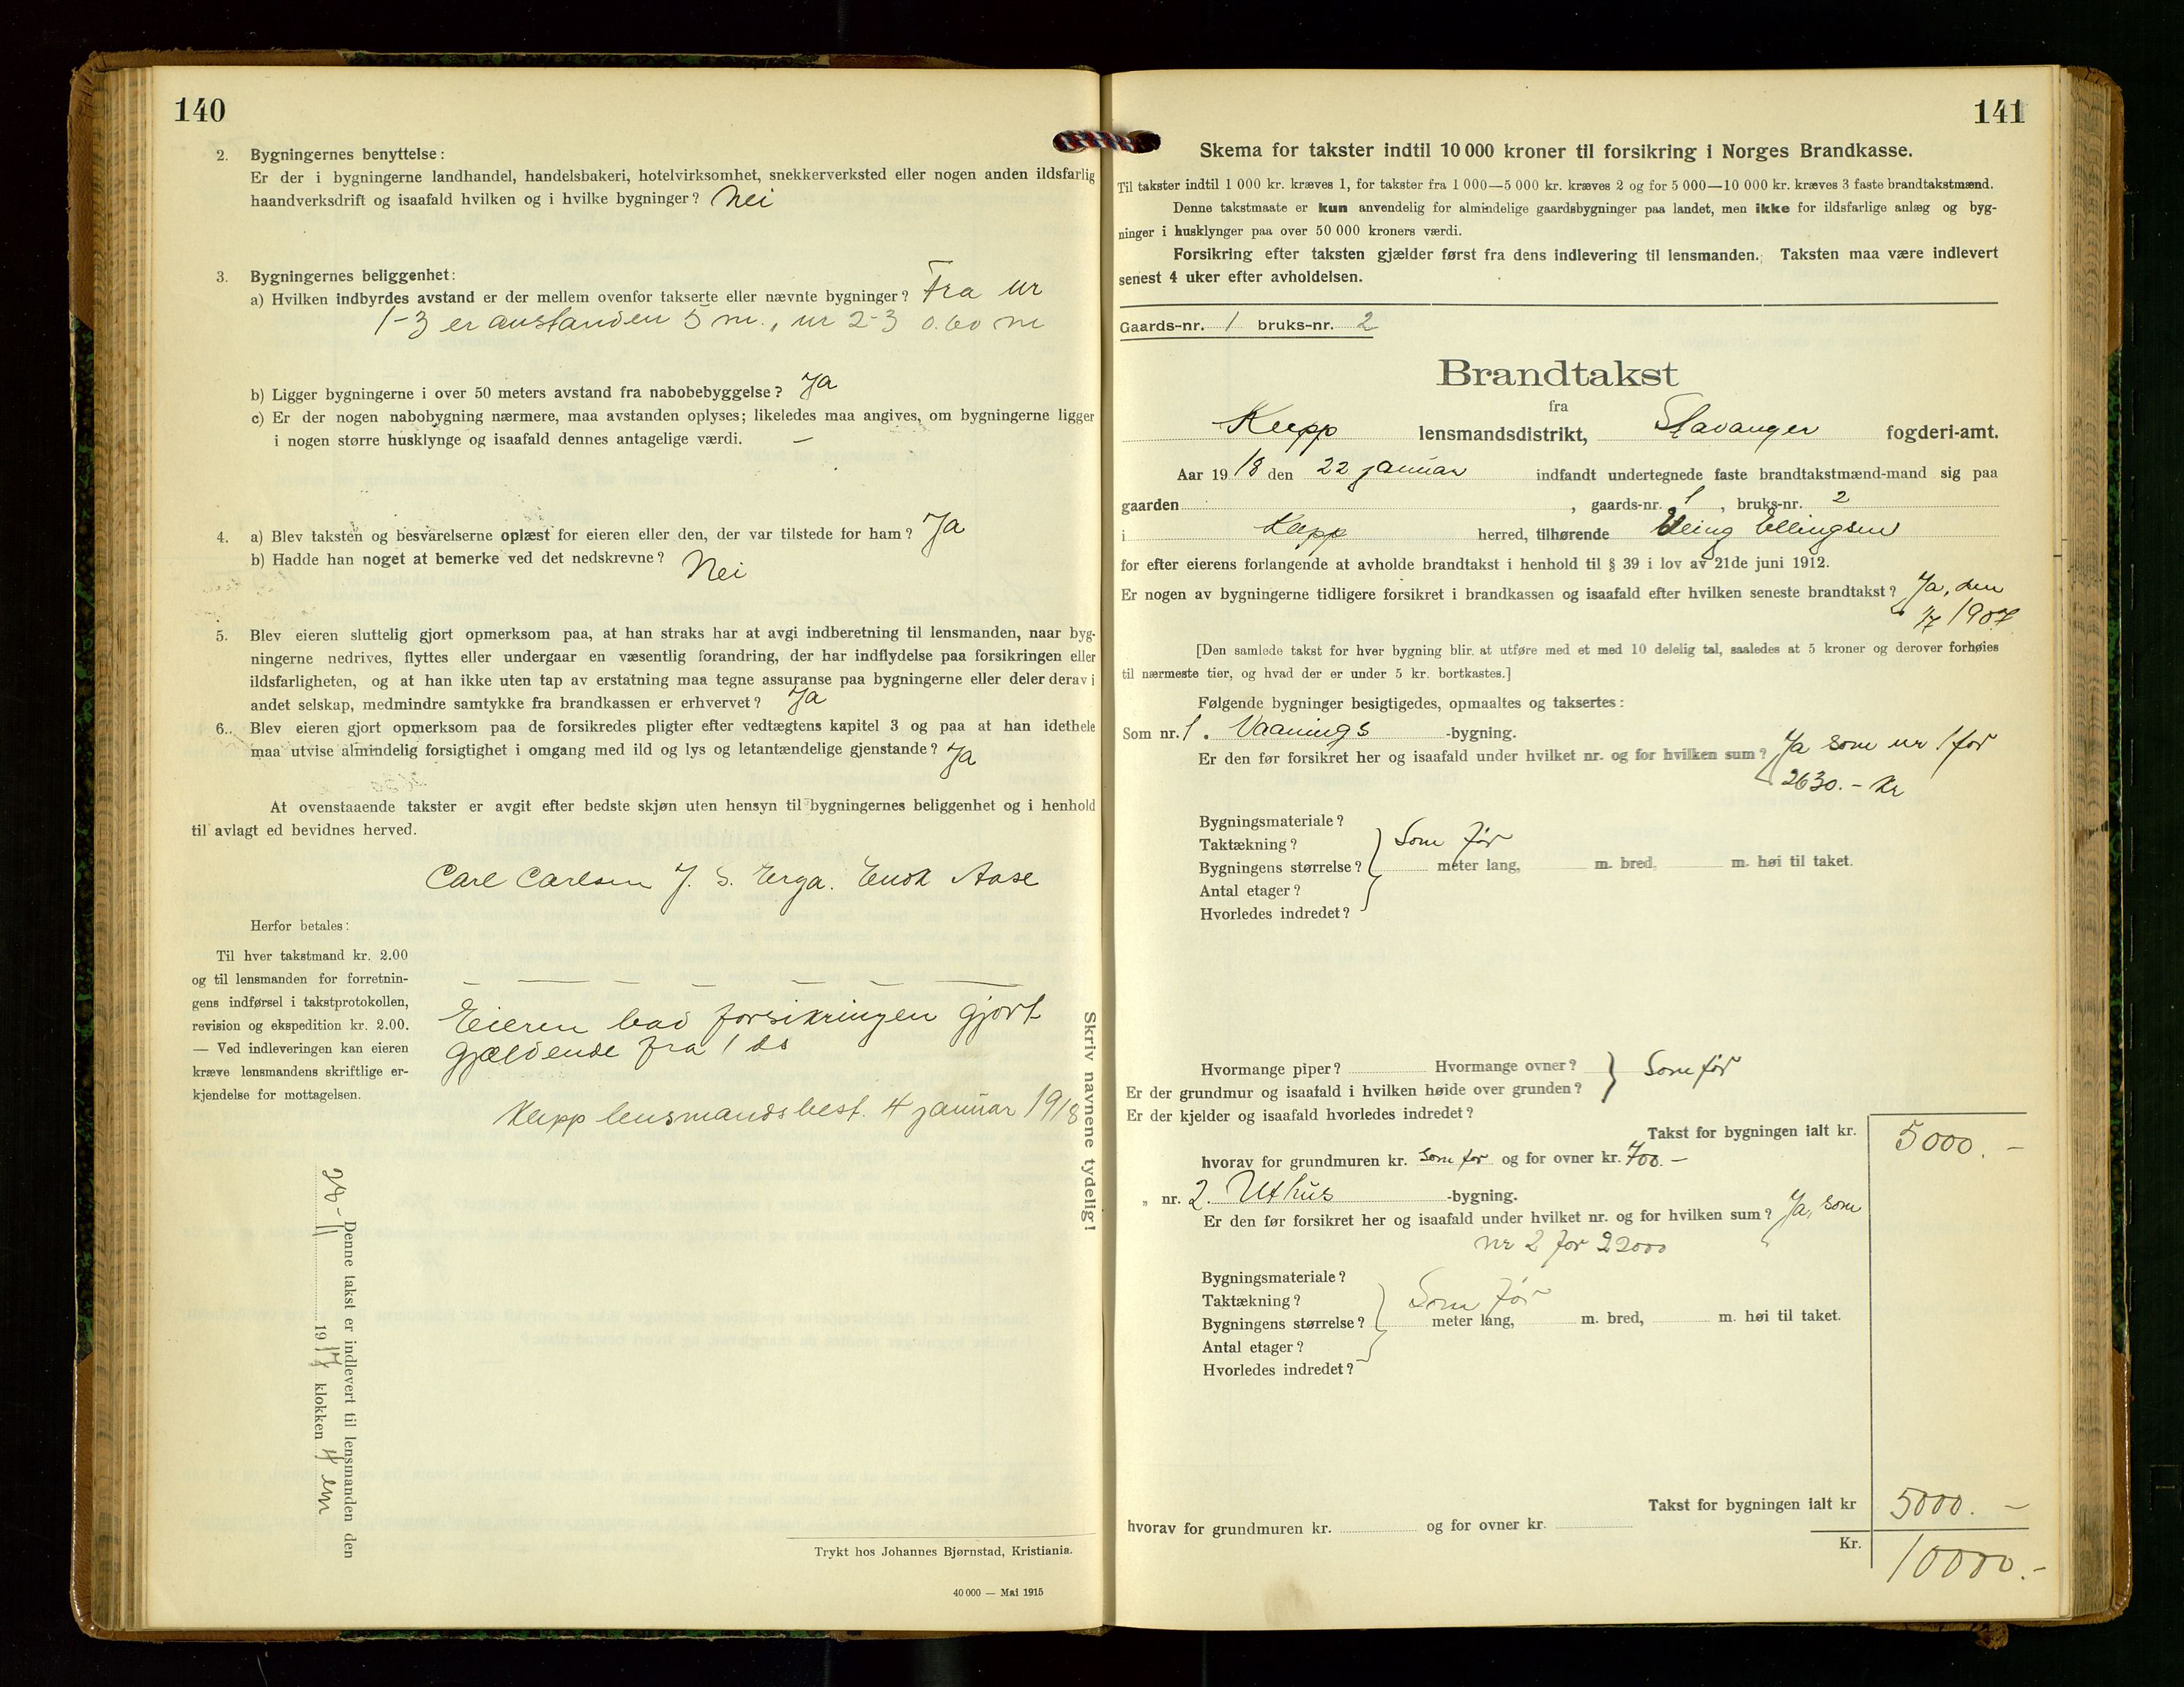 140
2. Bygningernes benyttelse:
Er der i bygningerne landhandel, handelsbakeri, hotelvirksomhet, snekkerverksted eller nogen anden ildsfarlig
haandverksdrift og isaafald hvilken og i hvilke bygninger? Nei
3. Bygningernes beliggenhet:
a) Hvilken indbyrdes avstand er der mellem ovenfor takserte eller nævnte bygninger? Fra nr
1-3 er avstanden 5 m., nr 2-3 0.60 m
b) Ligger bygningerne i over 50 meters avstand fra nabobebyggelse? Ja
c) Er der nogen nabobygning nærmere, maa avstanden oplyses; likeledes maa angives, om bygningerne ligger
i nogen større husklynge og isaafald dennes antagelige værdi. —
4. a) Blev taksten og besvarelserne oplæst for eieren eller den, der var tilstede for ham? Ja
b) Hadde han noget at bemerke ved det nedskrevne? Nei
5. Blev eieren sluttelig gjort opmerksom paa, at han straks har at avgi indberetning til lensmanden, naar byg-
ningerne nedrives, flyttes eller undergaar en væsentlig forandring, der har indflydelse paa forsikringen eller
ildsfarligheten, og at han ikke uten tap av erstatning maa tegne assuranse paa bygningerne eller deler derav i
andet selskap, medmindre samtykke fra brandkassen er erhvervet? Ja
6. Blev eieren gjort opmerksom paa de forsikredes pligter efter vedtægtens kapitel 3 og paa at han idethele
maa utvise almindelig forsigtighet i omgang med ild og lys og letantændelige gjenstande? Ja
At ovenstaaende takster er avgit efter bedste skjøn uten hensyn til bygningernes beliggenhet og i henhold
til avlagt ed bevidnes herved.
Carl Carlsen J. S. Erga. Endr Aase
Herfor betales:
Til hver takstmand kr. 2.00
og til lensmanden for forretnin-
gens indførsel i takstprotokollen,
revision og ekspedition kr. 2.00.
— Ved indleveringen kan eieren
kræve lensmandens skriftlige er-
kjendelse for mottagelsen.
Eieren bad forsikringen gjort
gjældende fra 1 ds
Klepp lensmandsbest. 4 januar 1918
Skriv navnene tydelig!
Denne takst er indlevert til lensmanden den
28-11 1917 klokken 4 em
Trykt hos Johannes Bjørnstad, Kristiania.
40 000 — Mai 1915
141
Skema for takster indtil 10 000 kroner til forsikring i Norges Brandkasse.
Til takster indtil 1 000 kr. kræves 1, for takster fra 1 000—5 000 kr. kræves 2 og for 5 000—10 000 kr. kræves 3 faste brandtakstmænd.
Denne takstmaate er kun anvendelig for almindelige gaardsbygninger paa landet, men ikke for ildsfarlige anlæg og byg-
ninger i husklynger paa over 50 000 kroners værdi.
Forsikring efter taksten gjælder først fra dens indlevering til lensmanden. Taksten maa være indlevert
senest 4 uker efter avholdelsen.
Gaards-nr. 1 bruks-nr. 2
Brandtakst
fra
Klepp lensmandsdistrikt, Stavanger fogderi-amt.
Aar 1918 den 22 januar indfandt undertegnede faste brandtakstmænd-mand sig paa
gaarden , gaards-nr. 1, bruks-nr. 2
i Klepp herred, tilhørende Elling Ellingsen
for efter eierens forlangende at avholde brandtakst i henhold til § 39 i lov av 21de juni 1912.
Er nogen av bygningerne tidligere forsikret i brandkassen og isaafald efter hvilken seneste brandtakst? Ja, den
1907
[Den samlede takst for hver bygning blir at utføre med et med 10 delelig tal, saaledes at 5 kroner og derover forhøies
til nærmeste tier, og hvad der er under 5 kr. bortkastes.]
Følgende bygninger besigtigedes, opmaaltes og taksertes:
Som nr. 1. Vaanings -bygning.
Er den før forsikret her og isaafald under hvilket nr. og for hvilken sum? Ja som nr 1 for
2630.- Kr
Bygningsmateriale?
Taktækning? Som før
Bygningens størrelse? meter lang, m. bred, m. høi til taket.
Antal etager?
Hvorledes indredet?
Hvormange piper? Hvormange ovner? Som før
Er der grundmur og isaafald i hvilken høide over grunden?
Er der kjelder og isaafald hvorledes indredet?
Takst for bygningen ialt kr. 5000.-
hvorav for grundmuren kr. Som før og for ovner kr. 700.-
„ nr. 2. Uthus -bygning.
Er den før forsikret her og isaafald under hvilket nr. og for hvilken sum? Ja, som
nr 2 for 22000
Bygningsmateriale?
Taktækning? Som før
Bygningens størrelse? meter lang, m. bred, m. høi til taket.
Antal etager?
Hvorledes indredet?
Takst for bygningen ialt kr 5000.-
hvorav for grundmuren kr. og for ovner kr.
Kr. 10000.-